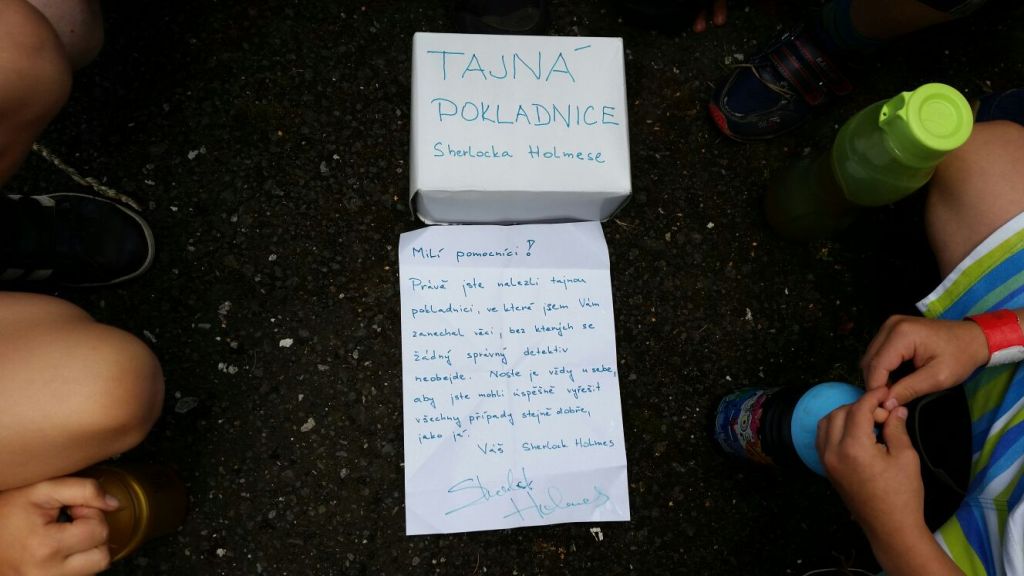 TAJNÁ
POKLADNICE
Sherlocka Holmese
Milí pomocníci!
Právě jste nalezli tajnou
pokladnici, ve které jsem Vám
zanechal věci, bez kterých se
žádný správný detektiv
neobejde. Noste je vždy u sebe,
aby jste mohli úspěšně vyřešit
všechny případy stejně dobře,
jako já.
Váš Sherlock Holmes
Sherlock
Holmes